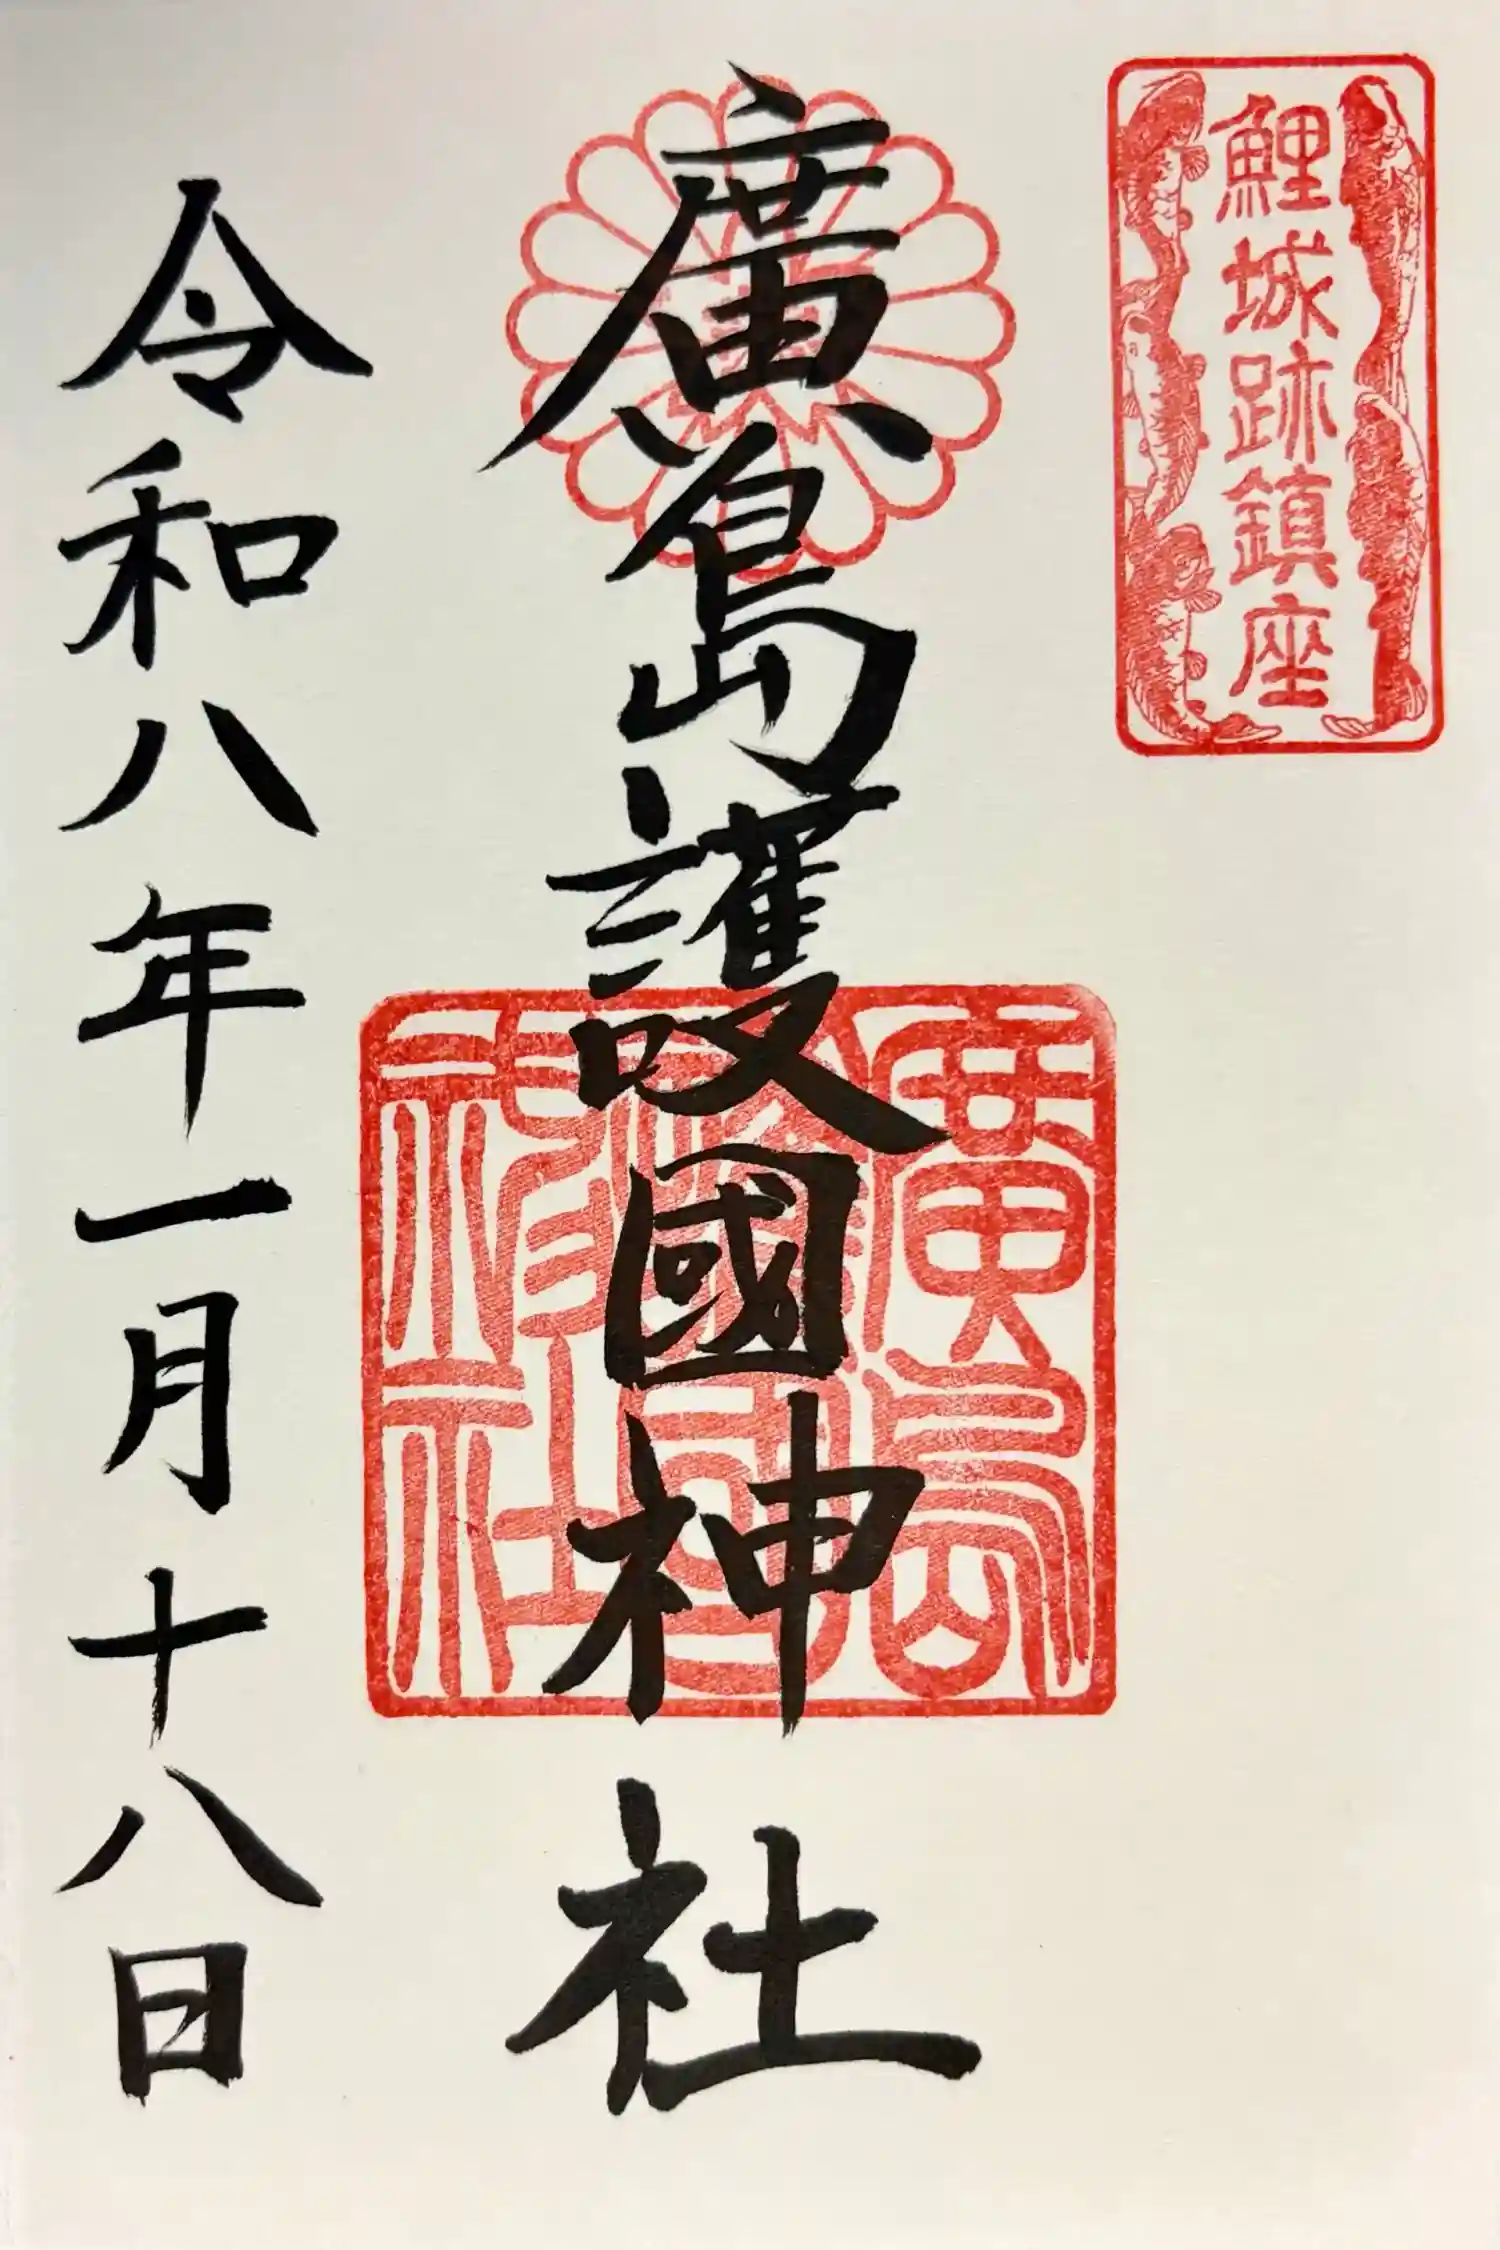 鯉城跡鎮座
廣島護國神社
廣島護國神社
令和八年一月十八日